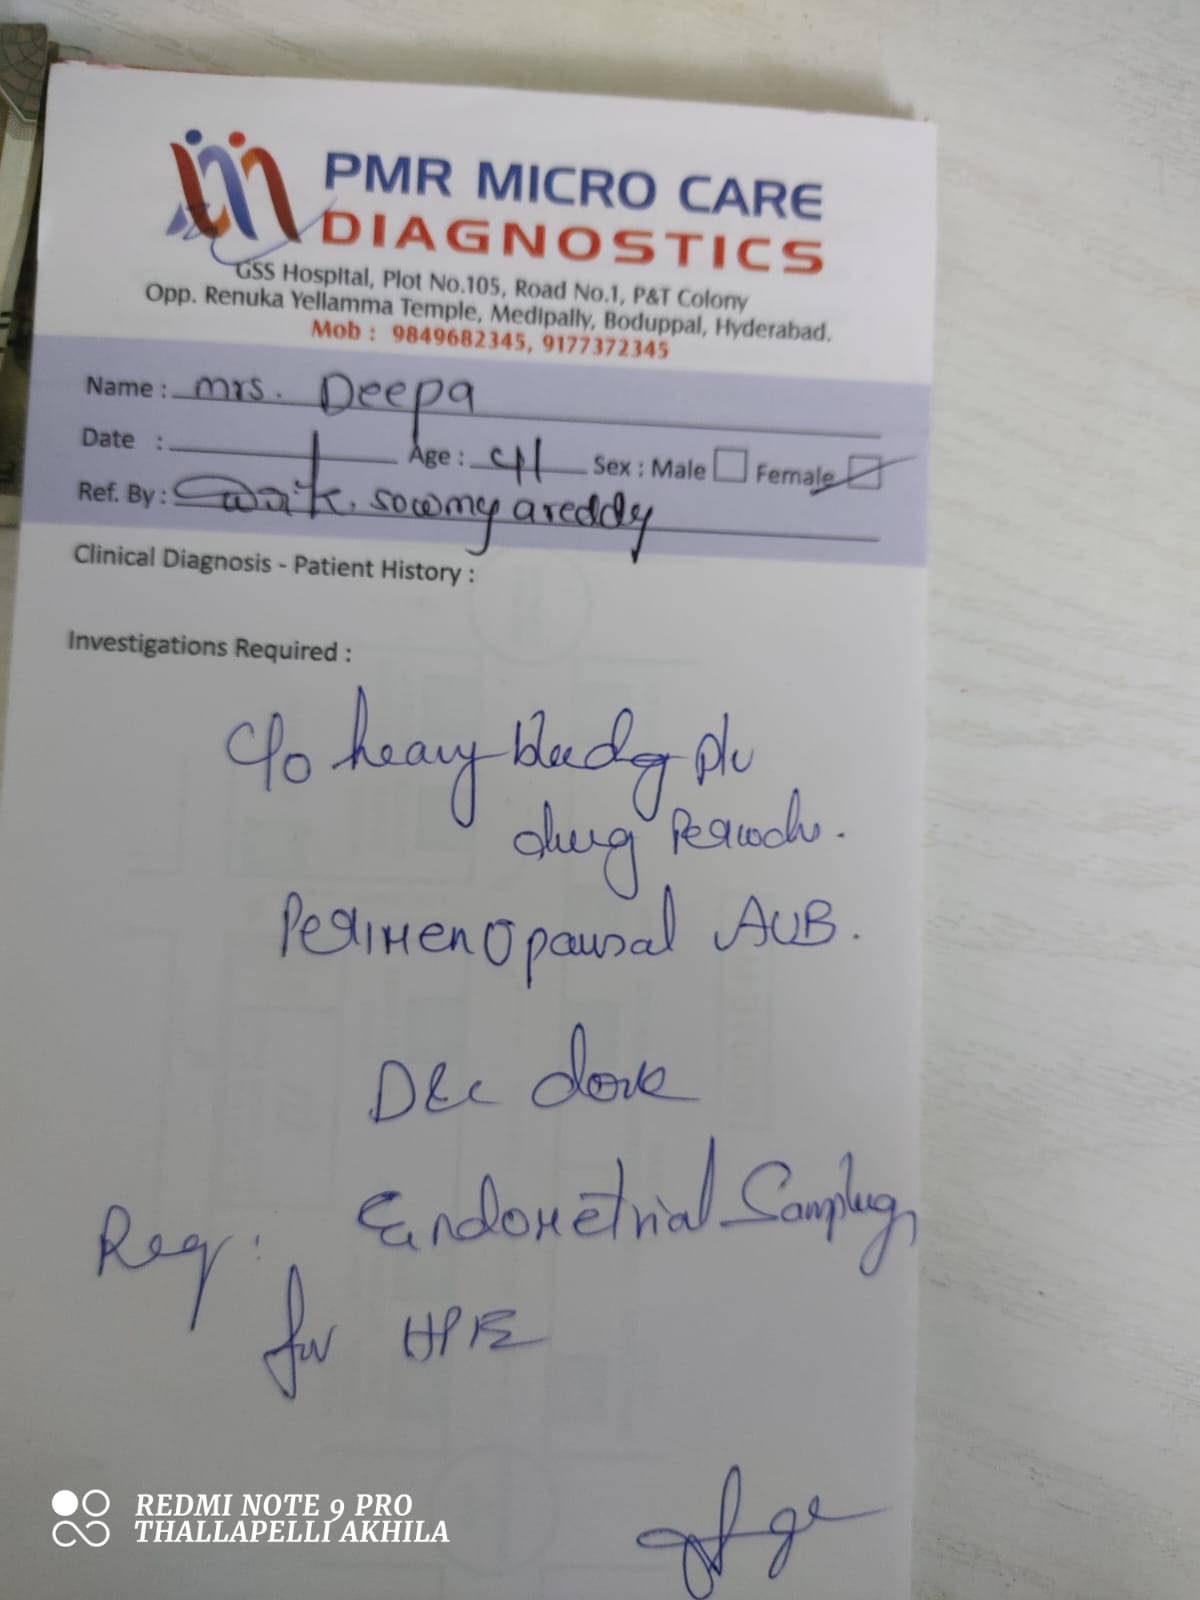 PMR MICRO CARE
DIAGNOSTICS
GSS Hospital, Plot No.105, Road No.1, P&T Colony
Opp. Renuka Yellamma Temple, Medipally, Boduppal, Hyderabad.
Mob : 9849682345, 9177372345
Name : mrs. Deepa
Date : Age : 41 Sex : Male Female
Ref. By : K. sowmyareddy
Clinical Diagnosis - Patient History :
Investigations Required :
C/o heavy bleedg p/v
durg Periods.
Perimenopausal AUB.
D&C done
Req: Endometrial Samplug
for HPE
REDMI NOTE 9 PRO
THALLAPELLI AKHILA